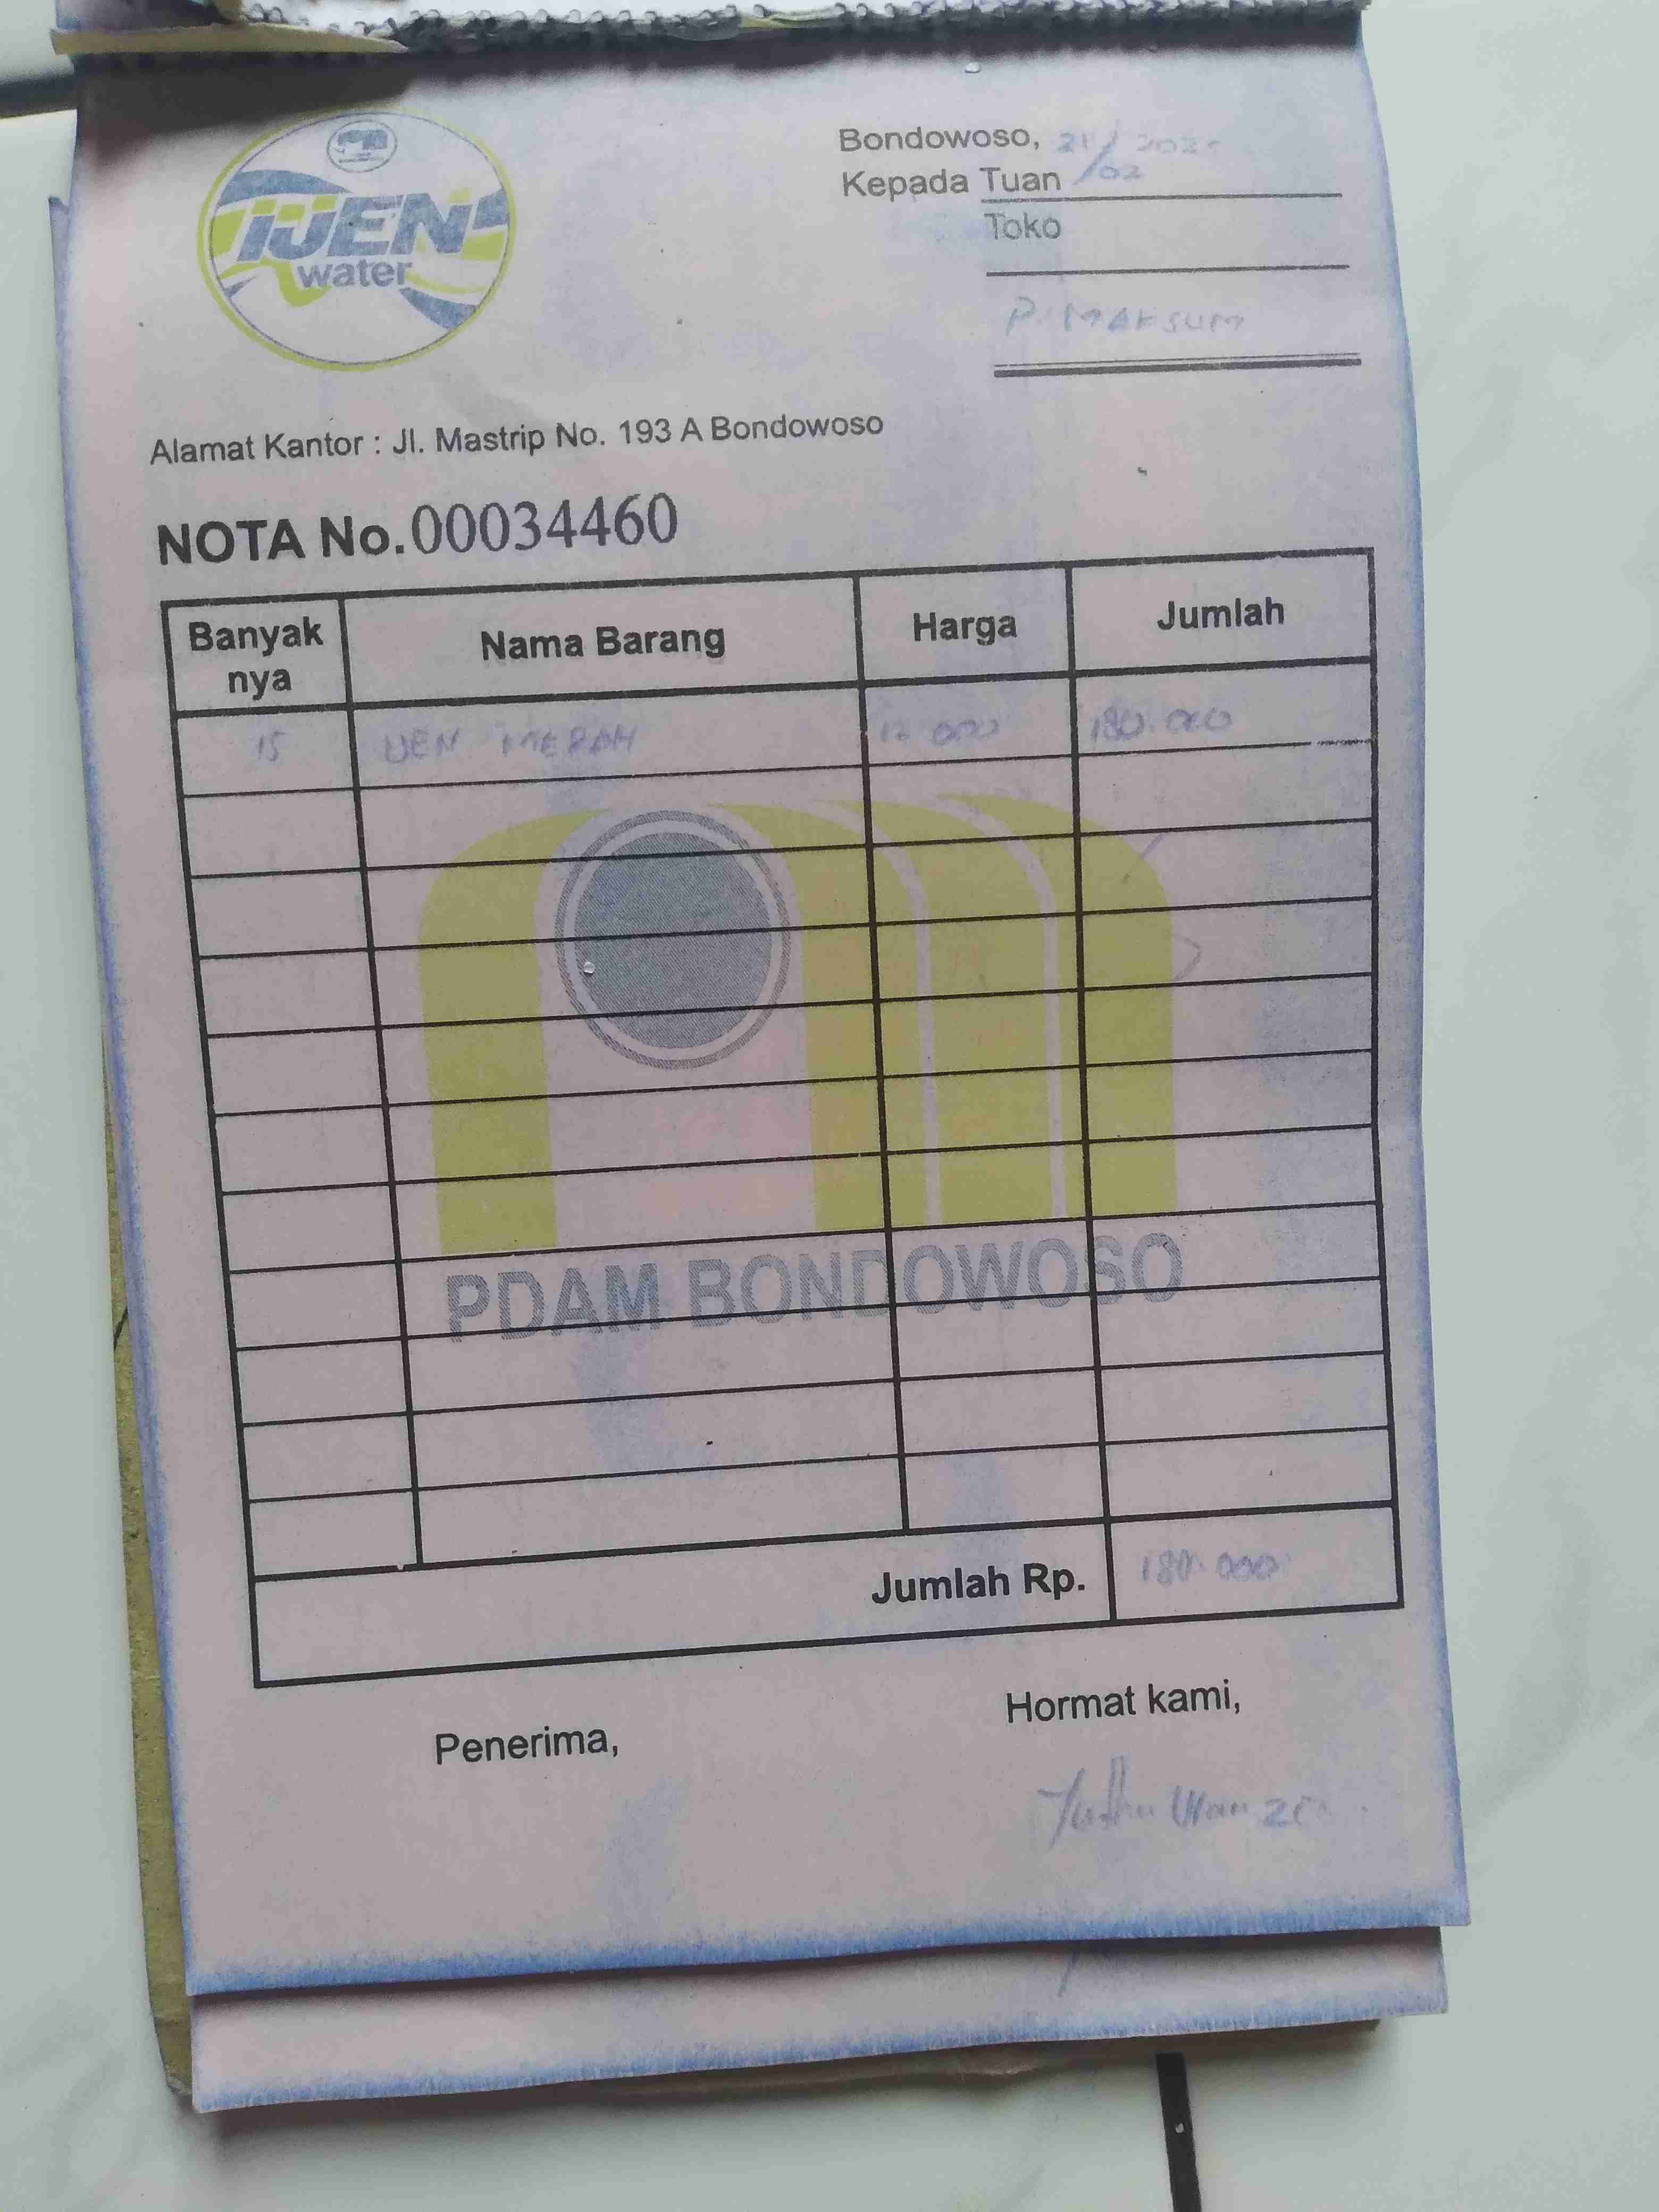 IJEN
water
Bondowoso, 21/02
Kepada Tuan
Toko
P. MAKSUM
Alamat Kantor : Jl. Mastrip No. 193 A Bondowoso
NOTA No. 00034460
Banyak nya Nama Barang Harga Jumlah
15 IJEN MERAH 12.000 180.000
PDAM BONDOWOSO
Jumlah Rp. 180.000
Penerima,
Hormat kami,